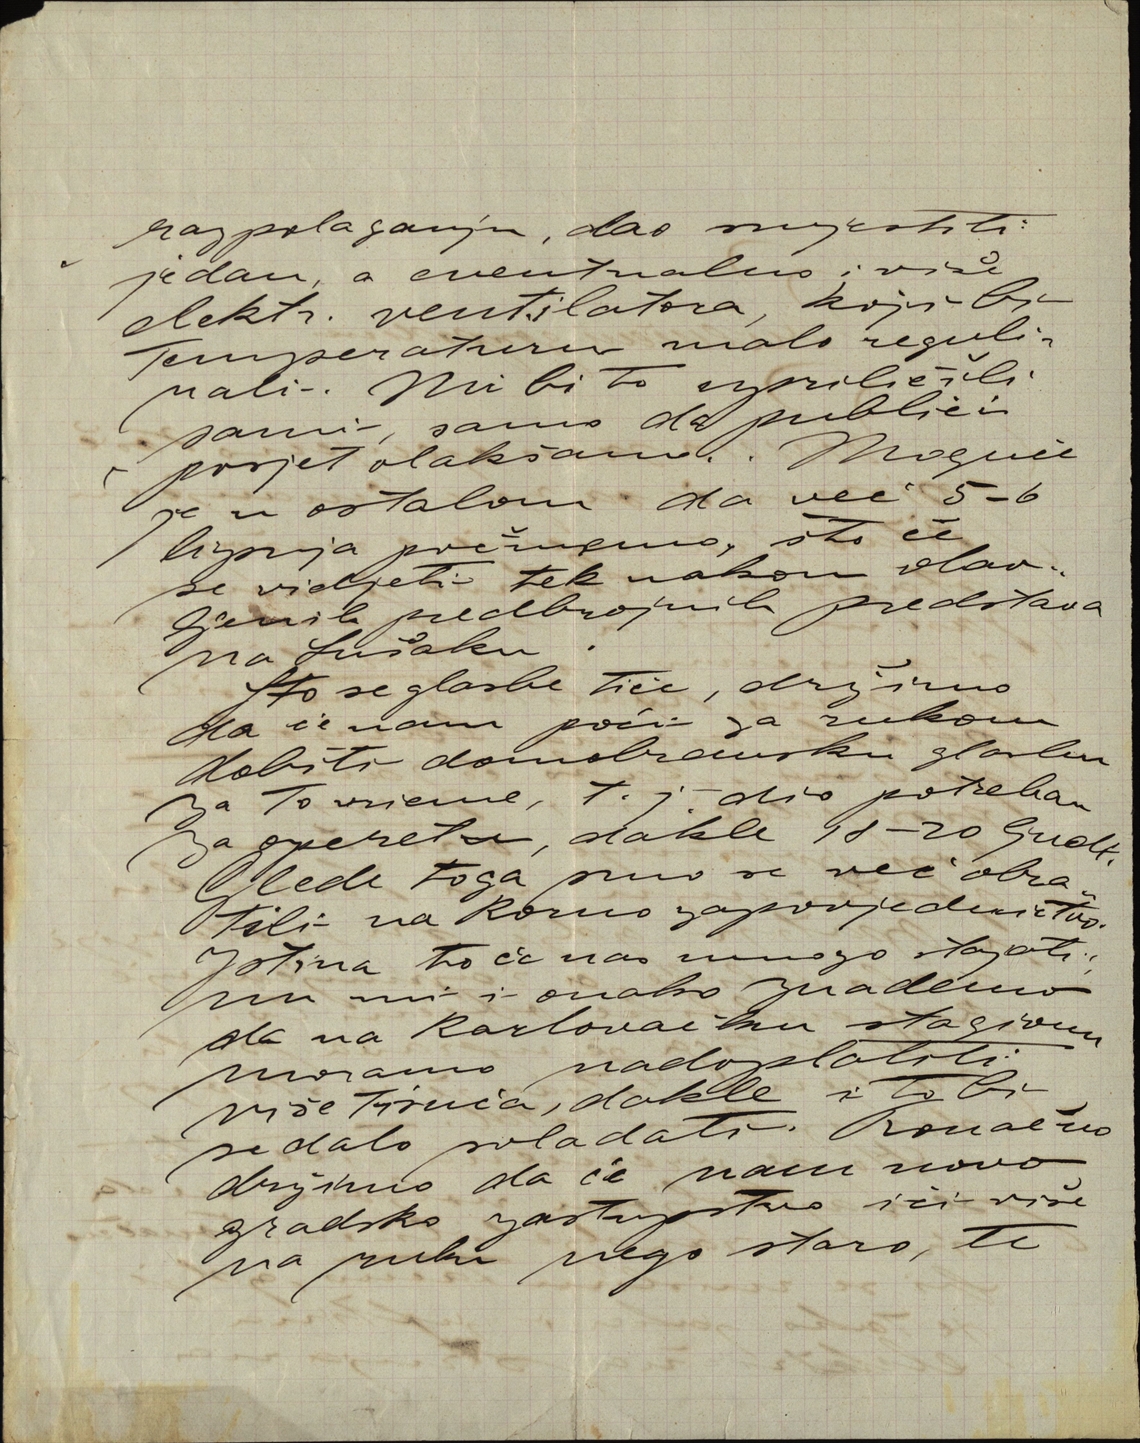 razpolaganju, dao smjestiti
jedan, a eventualno i više
elektr. ventilatora, koji bi
temperaturu malo reguli-
rali. Mi bi to upriličili
sami, samo da publici
posjet olakšamo. Moguće
je u ostalom da već 5-6
lipnja počnemo, što će
se vidjeti tek nakon obav-
ljenih predbrojnih predstava
na Sušaku.
Što se glasbe tiče, držimo
da će nam poći za rukom
dobiti domobransku glasbu
za to vrieme, t. j. dio potreban
za operetu, dakle 18-20 ljudi.
Glede toga smo se već obra-
tili na Korno zapovjedničtvo.
Istina to će nas mnogo stajati,
no mi i onako znademo
da na Karlovačku stagionu
moramo nadoplatiti
više tisuća, dakle i to bi
se dalo svladati. Konačno
držimo da će nam novo
gradsko zastupstvo ići više
na ruku nego staro, te